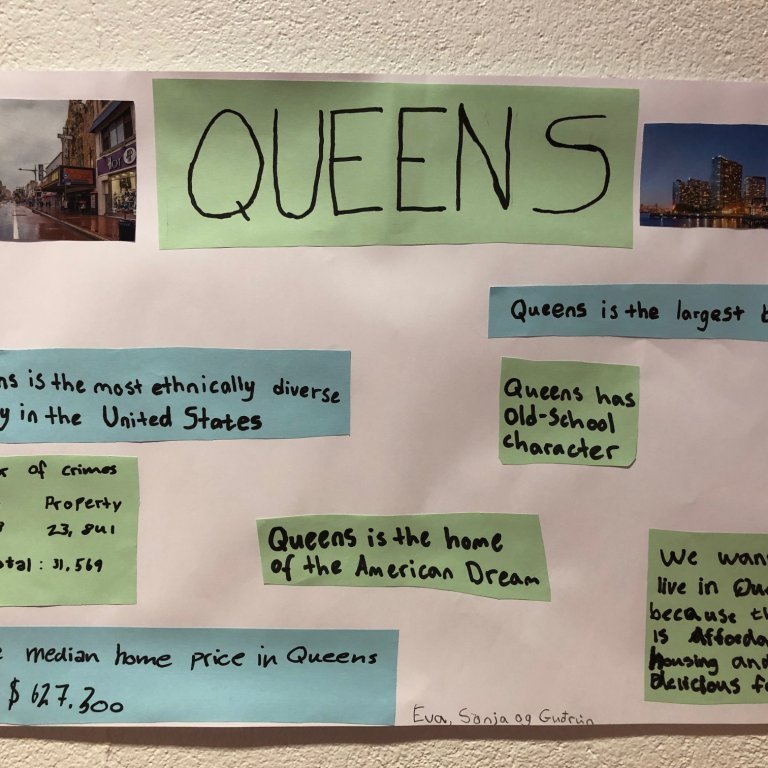 QUEENS
Queens is the largest b
ns is the most ethnically diverse
y in the United States
Queens has
Old-School
character
r of crimes
Property
23,841
otal: 31,569
Queens is the home
of the American Dream
We wan
live in Que
because th
is Afforda
housing and
Delicious fo
e median home price in Queens
$ 627.300
Eva, Sonja og Guðrún